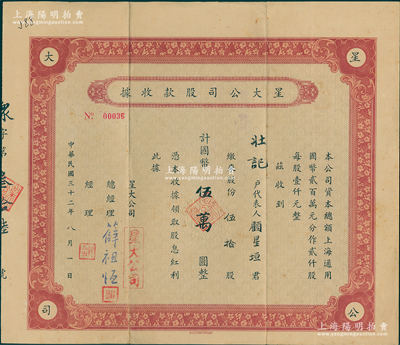 上海陽明拍賣
星 大 公 司
星大公司股款收據
No 00036
本公司資本總額上海通用
國幣貳百萬元分作貳仟股
每股壹仟元整
茲收到
壯記 戶代表人顧星垣君
繳來股份 伍拾 股
計國幣 伍萬 圓整
憑本收據領取股息紅利
此據
星大公司
總經理 薛祖恒
經理
中華民國三十二年 八月 一日
字第
號
上海陽明拍賣